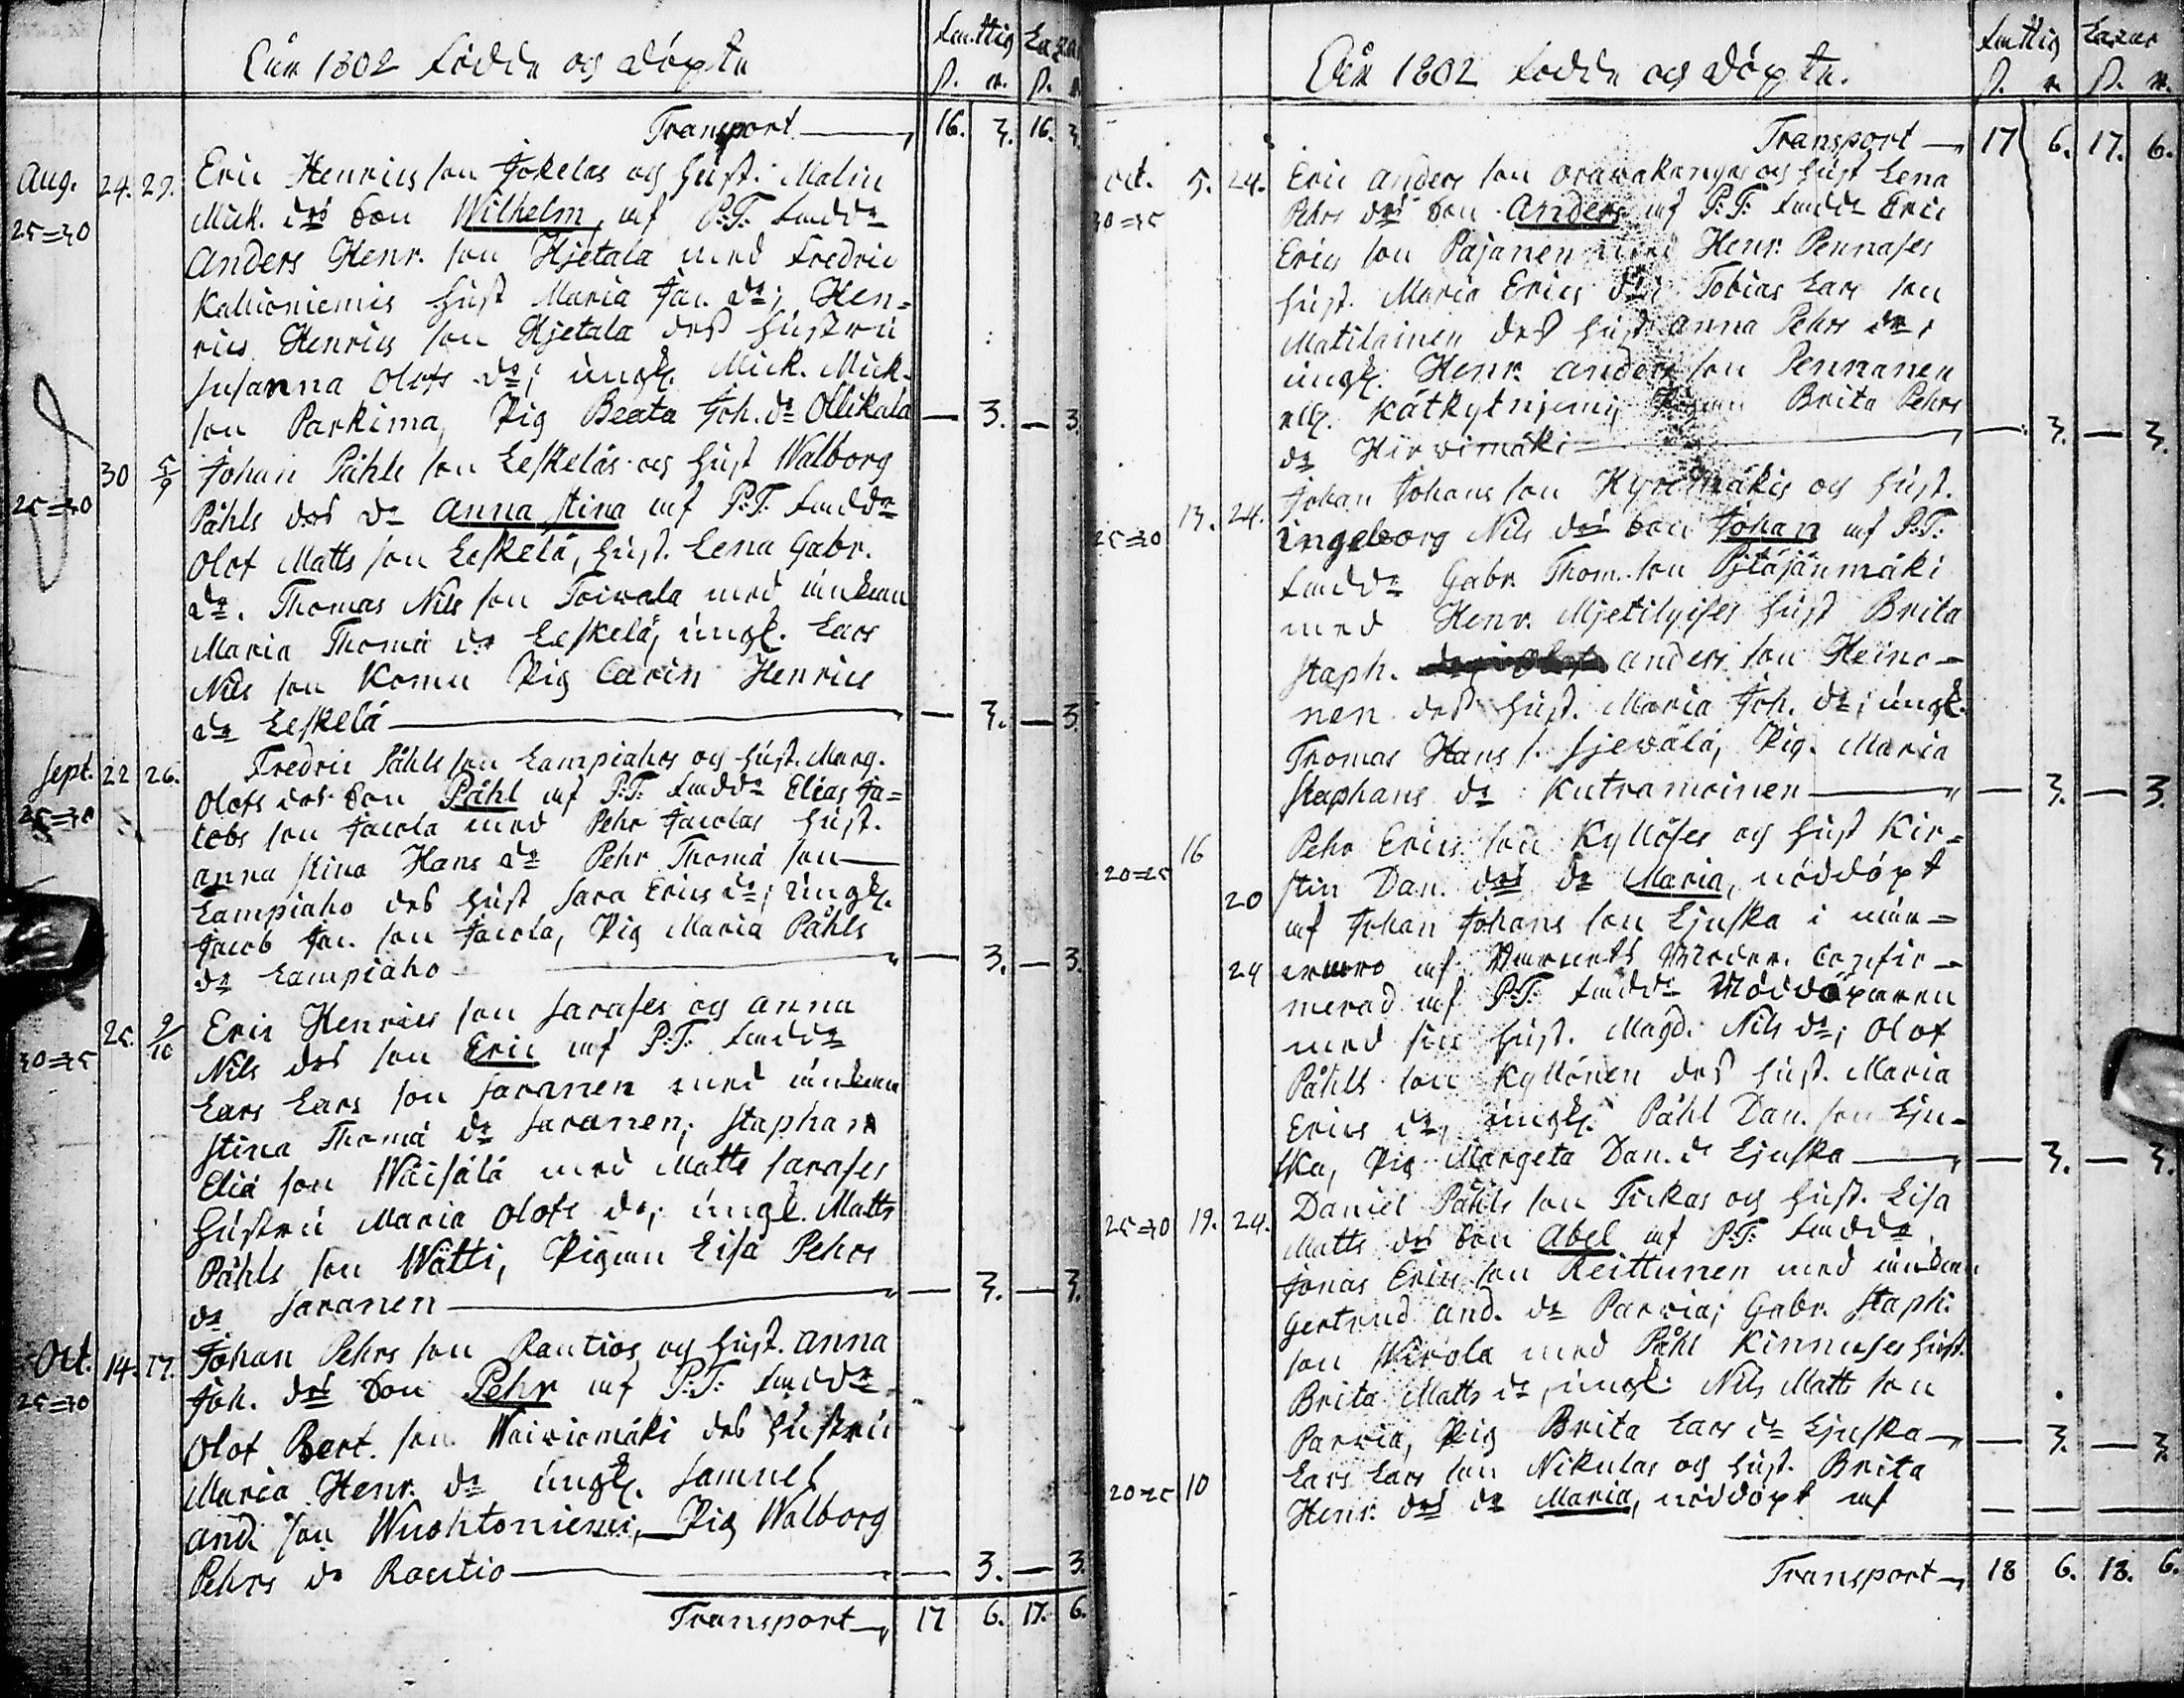 Åhr 1802 Födde og Döpte
Fattig Lazar
ß. r. ß. r.
Transport 16. 3. 16. 3.
Aug. 24. 29. Eric Henrics son Jokelas og Hust. Malin
25=30 Mick. drs Son Wilhelm, af P.T. Fadd:r
Anders Henr. son Hjetala med Fredric
Kallioniemis Hust Maria Jac. dr; Hen=
rics Henrics son Hjetala des Hustru
Susanna Olofs dr; ungk. Mick. Mick-
son Parkima, Pig Beata Joh. dr Ollikala — 3. — 3.
30 5/9 Johan Påhls son Leskeläs og Hust Walborg
25=30 Påhls drs dr Anna Stina af P.T. Fadd:r
Olof Matts son Leskelä, Hust. Lena Gabr.
dr. Thomas Nils son Toivala med änkan
Maria Thomä dr Leskelä, ungk. Lars
Nils son Komu Pig Carin Henrics
dr Leskelä — 3. — 3.
Sept. 22 26. Fredric Påhls son Lampiahos og Hust. Marg.
25=30 Olofs drs Son Påhl af P.T. Fadd:r Elias Ja=
cobs son Jacola med Pehr Jacolas Hust.
Anna Stina Hans dr Pehr Thomä son
Lampiaho des Hust Sara Erics dr; ungk.
Jacob Jac. son Jacola, Pig Maria Påhls
dr Lampiaho — 3. — 3.
25. 9/10 Eric Henrics son Sarases og Anna
30=35 Nils drs son Eric af P.T. Fadd:r
Lars Lars son Saranen med änkan
Stina Thomä dr Saranen; Staphan
Eliä son Wäisälä med Matts Sarases
Hustru Maria Olofs dr; ungk. Matts
Påhls son Wätti, Pigan Lisa Pehrs
dr Saranen — 3. — 3.
Oct. 14. 17. Johan Pehrs son Rautios og Hust. Anna
25=30 Joh. drs Son Pehr af P.T. Fadd:r
Olof Bert. son Waiviomäki des Hustru
Maria Henr. dr ungk. Samuel
And. son Wuohtoniemi, Pig Walborg
Pehrs dr Rautio — 3. — 3.
Transport 17 6. 17. 6.
Åhr 1802 Födde og Döpte.
Fattig Lazar
ß. r. ß. r.
Transport 17 6. 17. 6.
Oct. 5. 24. Eric Anders son Orawakangas og Hust Lena
30=35 Pehrs drs Son Anders af P.T. Fadd:r Eric
Erics son Pajanen med Henr. Pennases
Hust. Maria Erics dr; Tobias Lars son
Matilainen des Hust Anna Pehrs dr,
ungk. Henr. Anders son Pennanen
Kätkytniemi, Pigan Brita Pehrs
dr Hirvimäki — 3. — 3.
13. 24. Johan Johans son Kyrömäkis og Hust.
25=30 Ingeborg Nils drs Son Johan af P.T.
Fadd:r Gabr. Thom. son Pitäjänmäki
med Henr. Mjetilyises Hust Brita
Staph. Anders son Heino-
nen des Hust. Maria Joh. dr; ungk.
Thomas Hans s. Sjewälä, Pig. Maria
Staphans dr Kutramoinen — 3. — 3.
16 Pehr Erics son Kyllöses og Hust Kir=
20=25 20 stin Dan. drs dr Maria, nöddöpt
af Johan Johans son Ljuska i när=
24 varo af Barnets Moder. Confir-
merad af P.T. Fadd:r Nöddöparen
med sin Hust. Magd. Nils dr; Olof
Påhls son Kyllönen des Hust. Maria
Erics dr, ungk. Påhl Dan. son Lju-
ska, Pig Margeta Dan. dr Ljuska — 3. — 3.
25=30 19. 24. Daniel Påhls son Tickas og Hust. Lisa
Matts drs Son Abel af P.T. Fadd:r
Jonas Erics son Reittunen med änkan
Gertrud And. dr Parvia; Gabr. Staph.
son Wirola med Påhl Kinnuses Hust.
Brita Matts dr, ungk. Nils Matts son
Parvia, Pig Brita Lars dr Ljuska — 3. — 3.
20=25 10 Lars Lars son Nikulas og Hust. Brita
Henr. drs dr Maria, nöddöpt af
Transport 18 6. 18. 6.